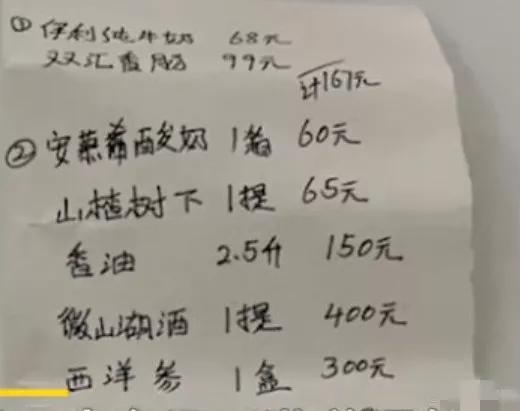 ① 伊利纯牛奶 68元
双汇香肠 99元
计167元
② 安慕希酸奶 1箱 60元
山楂树下 1提 65元
香油 2.5升 150元
微山湖酒 1提 400元
西洋参 1盒 300元